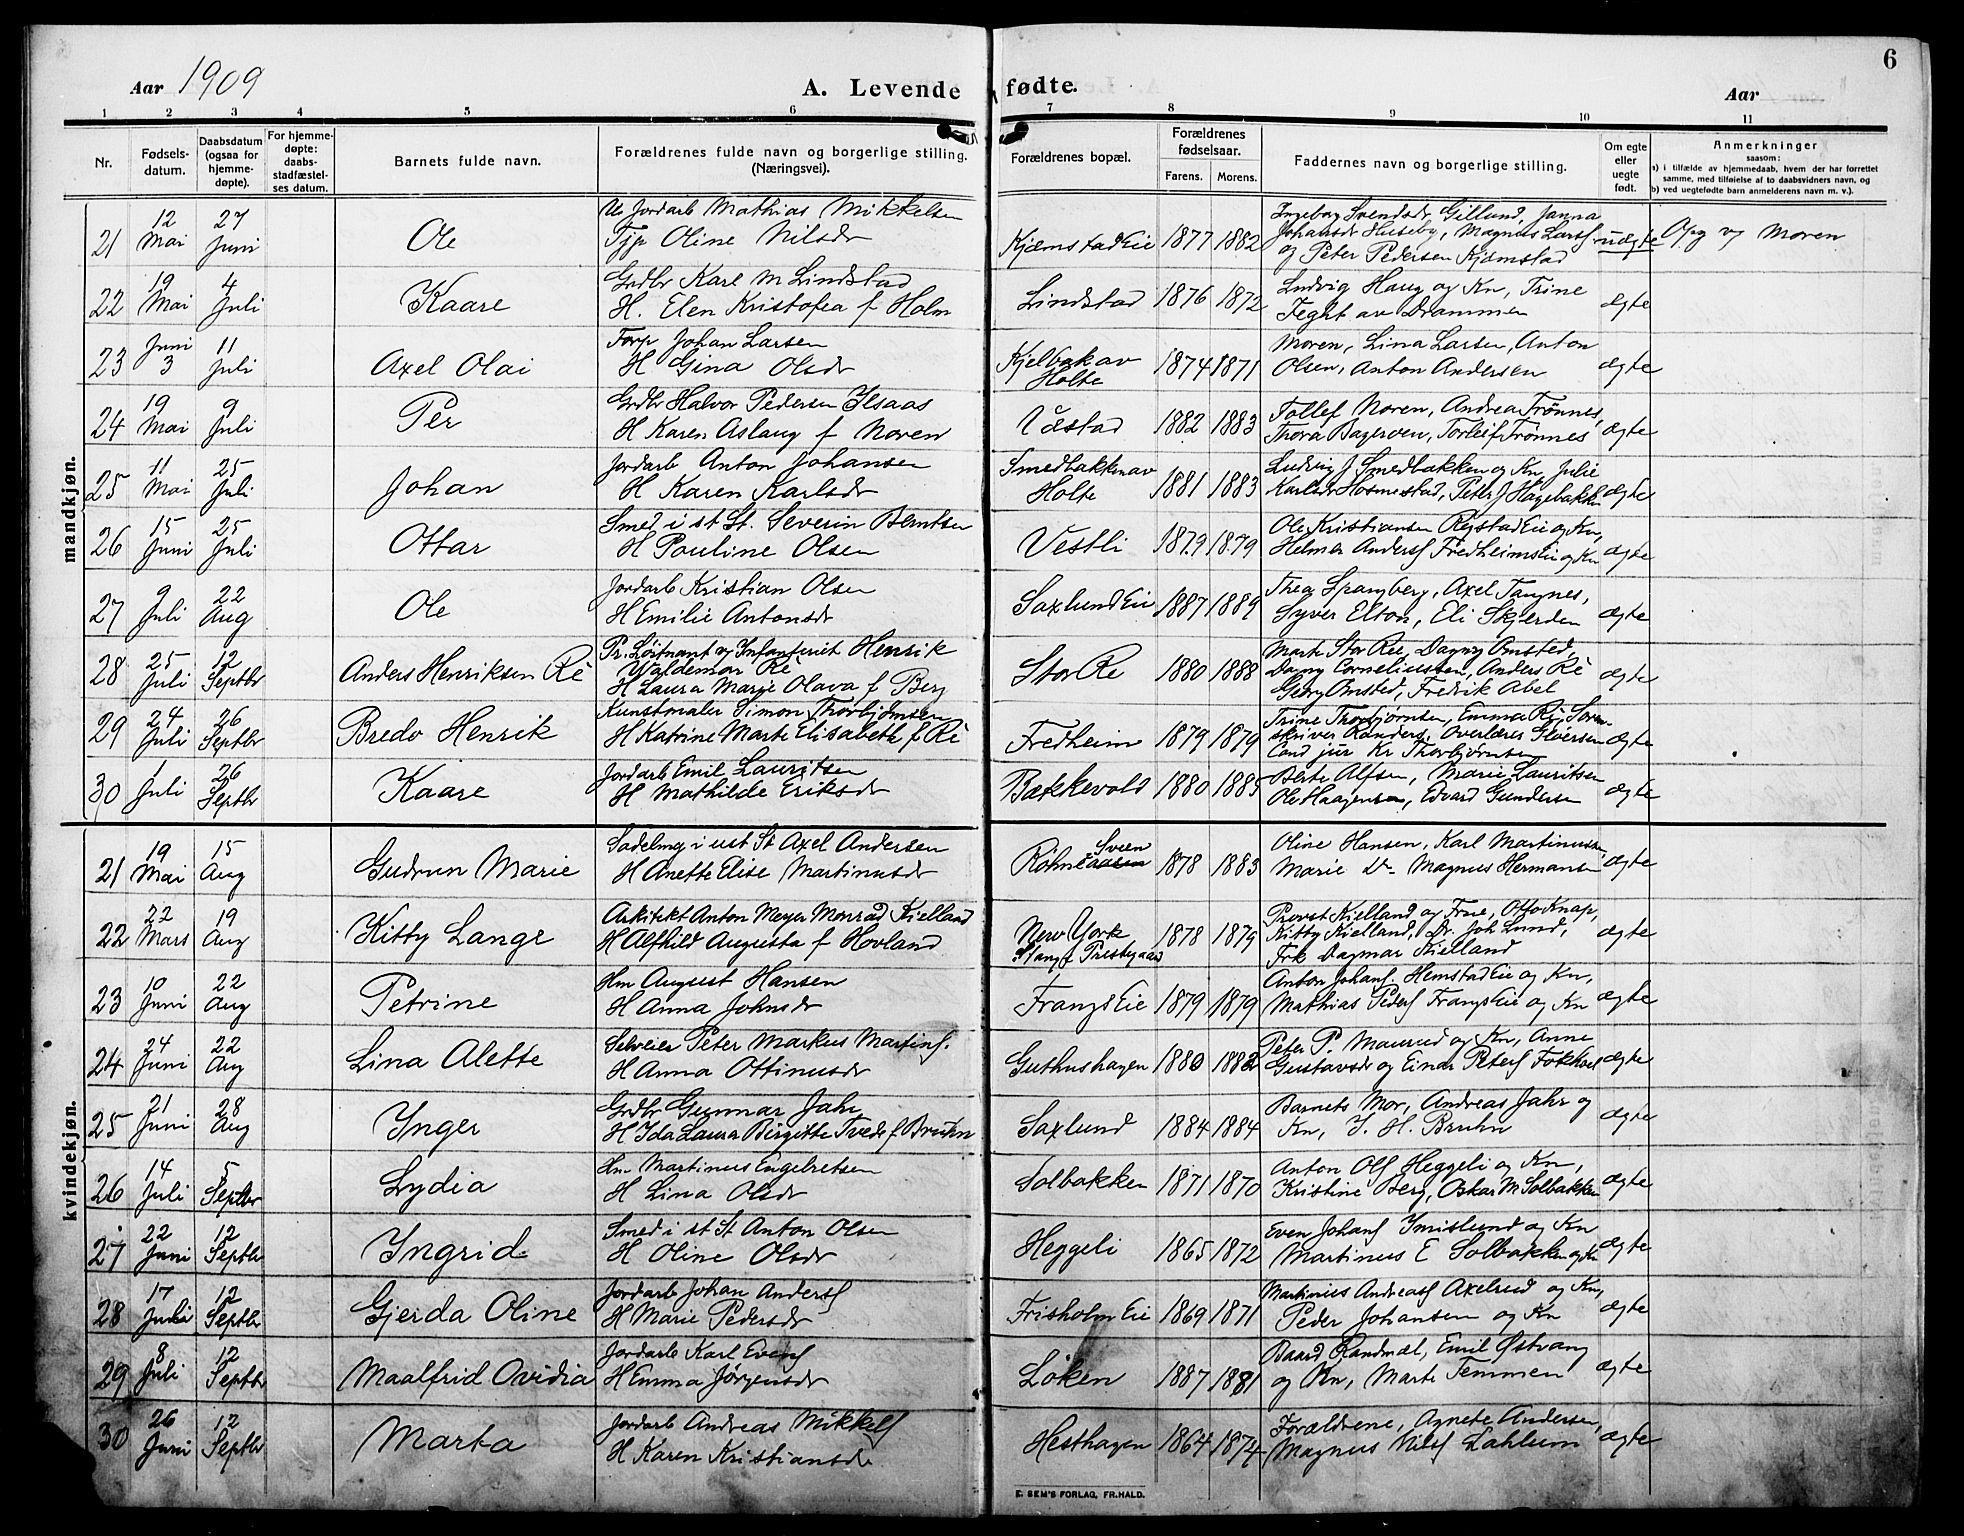 Aar 1909
A. Levende fødte.
Aar
6
1 2 3 4 5 6 7 8 9 10 11
Nr.
Fødsels-datum.
Daabsdatum (ogsaa for hjemme-døpte).
For hjemme-døpte: daabs-stadfæstel-ses datum.
Barnets fulde navn.
Forældrenes fulde navn og borgerlige stilling. (Næringsvei).
Forældrenes bopæl.
Forældrenes fødselsaar.
Farens. Morens.
Faddernes navn og borgerlige stilling.
Om egte eller uegte født.
Anmerkninger
saasom:
a) i tilfælde av hjemmedaab, hvem der har forrettet
samme, med tilføielse af to daabsvidners navn, og
b) ved uegtefødte barn anmelderens navn m. v.).
mandkjøn.
21 12 Mai 27 Juni Ole Jordarb Mathias Mikkelsen
Oline Nilsdr Kjemstad Eie 1877 1882 Ingeborg Svendsdr Gillund, Janna
Johansdr Huseby, Magnus Larss
og Peter Pedersen Kjemstad uægte Opg v Moren
22 19 Mai 4 Juli Kaare Grdbr Karl M Lindstad
H. Elen Kristofea f Holm Lindstad 1876 1872 Ludvig Haug og Kn, Trine
av Drammen ægte
23 Juni 3 11 Juli Axel Olai Johan Larsen
H Gina Olsdr Kjelbak av Holte 1874 1871 Moren, Lina Larsen, Anton
Olsen, Anton Andersen ægte
24 19 Mai 9 Juli Per Grdbr Halvor Pedersen Ilsaas
H Karen Aslaug f Noren Vestad 1882 1883 Tollef Noren, Andrea Trønnes,
Thora Torleif Trønnes ægte
25 11 Mai 25 Juli Johan Jordarb Anton Johansen
H Karen Karlsdr Smedbakken av Holte 1881 1883 Ludvig J Smedbakken og Kn, Julie
Karlsdr Hosmestad, Peter J Hagebakken ægte
26 15 Juni 25 Juli Ottar Smed i st St. Severin Berntsen
H Pauline Olsen Vestli 1879 1879 Ole Kristiansen Eie og Kn,
Helmer Anderss Fredheimseie og Kn ægte
27 9 Juli 22 Aug Ole Jordarb Kristian Olsen
H Emilie Antonsdr Saxlund Eie 1887 1889 Thea Spangberg, Axel Tangnes,
Syver Elton, Eli Skjerden ægte
28 25 Juli 12 Septbr Anders Henriksen Rè Pr. Løitnant v Infanteriet Henrik
Waldemar Rè
H Laura Marie Olava f Berg Stor Re 1880 1888 Marte Stor Ree, Dagny Omsted,
Dagny Corneliussen, Anders Rè
Georg Omsted, Fredrik Abel ægte
29 24 Juli 26 Septbr Bredo Henrik Kunstmaler Simon Thorbjørnsen
H Katrine Marte Elisabeth f Rè Fredheim 1879 1879 Trine Thorbjørnsen, Emma Rè, Soren-
skriver Randers, Overlærer Sivertsen
Cand jur Kr Thorbjørnsen ægte
30 1 Juli 26 Septbr Kaare Jordarb Emil Lauritsen
H Mathilde Eriksdr Bækkevold 1880 1885 Berte Alfsen, Marie Lauritsen
Ole Haagensen, Edvard Gundersen ægte
kvindekjøn.
21 19 Mai 15 Aug Gudrun Marie Sadelmg i ust St Axel Andersen
H Anette Elise Martinusdr Røhne Sveen 1878 1883 Oline Hansen, Karl Martinussen,
Marie Do Magnus Hermansen ægte
22 22 Mars 19 Aug Kitty Lange Arkitekt Anton Meyer Monrad Kielland
H Alfhild Augusta f Hovland New York
Stange Prestegaard 1878 1879 Provst Kielland og Frue, Otto Knap,
Kitty Kielland, Dr. Joh Lund,
Frk Dagmar Kielland ægte
23 10 Juni 22 Aug Petrine Hm August Hansen
H Anna Johnsdr Frangs Eie 1879 1879 Anton Johans Hemstad Eie og Kn,
Mathias Peders Frangs Eie og Kn ægte
24 24 Juni 22 Aug Lina Alette Selveier Peter Markus Martins.
H Anna Ottinusdr Guthushagen 1880 1882 Peter P. Maurud og Kn, Anne
Gustavsdr og Einar Peters Fokhol ægte
25 21 Juni 28 Aug Inger Grdbr Gunnar Jahr
H Ida Laura Birgitte Tvede f Bruhn Saxlund 1884 1884 Barnets Mor, Andreas Jahr og
Kn, J. H. Bruhn ægte
26 14 Juli 5 Septbr Lydia Hm Martinus Engebretsen
H Lina Olsdr Solbakken 1871 1870 Anton Ols Heggeli og Kn,
Kristine Berg, Oskar M Solbakken ægte
27 22 Juni 12 Septbr Ingrid Smed i st St Anton Olsen
H Oline Olsdr Heggeli 1865 1872 Even Johans Imislund og Kn
Martinus E Solbakken og Kn ægte
28 17 Juli 12 Septbr Gjerda Oline Jordarb Johan Anderss
H Marie Pedersdr Frisholm Eie 1869 1871 Martinius Andreass Axelrud og Kn,
Peder Johansen og Kn ægte
29 8 Juli 12 Septbr Maalfrid Ovidia Jordarb Karl Evens
H Emma Jørgensdr Løken 1887 1881 Baard Randmæl, Emil Østvang
og Kn, Marte Temmen ægte
30 26 Juni 12 Septbr Marta Jordarb Andreas Mikkels
H Karen Kristiansdr Hesthagen 1864 1874 Forældrene, Agnete Andersen,
Magnus Nilss Lahlum ægte
E. SEM'S FORLAG, FR.HALD.